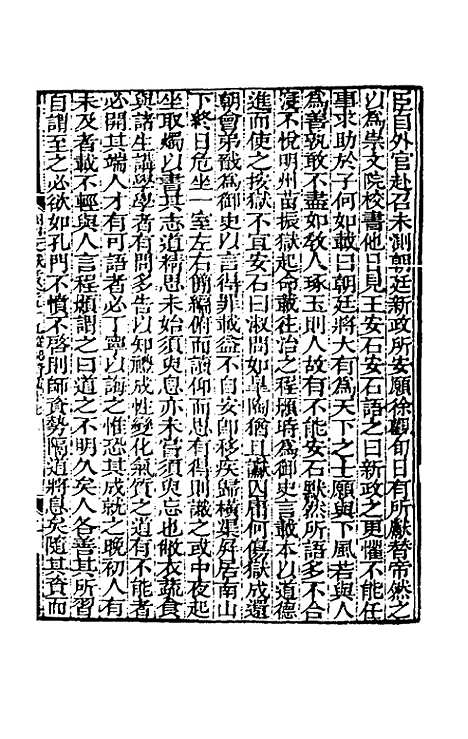 臣自外官赴召未測朝廷新政所安願徐觀旬日有所獻替帝然之
以為崇文院校書他日見王安石安石語之曰新政之更懼不能任
事求助於子何如載曰朝廷將大有為天下之士願與下風若與人
為善孰敢不盡如教人琢玉則人故有不能安石默然所語多不合
寖不悅明州苗振獄起命載往治之程顥時為御史言載本以道德
進而使之按獄不宜安石曰淑問如皐陶猶且讞囚庸何傷獄成還
朝會弟戩為御史以言得罪載益不自安卽移疾歸橫渠屛居南山
下終日危坐一室左右簡編俯而讀仰而思有得則識之或中夜起
坐取燭以書其志道精思未始須臾息亦未嘗須臾忘也敝衣蔬食
與諸生講學學者有問多告以知禮成性變化氣質之道有不能者
必開其端人才有可語者必丁寧以誨之惟恐其成就之晚初人有
未及者載不輕與人言程顥謂之曰道之不明久矣人各善其所習
自謂至之必欲如孔門不憤不啓則師資勢隔道將息矣隨其資而